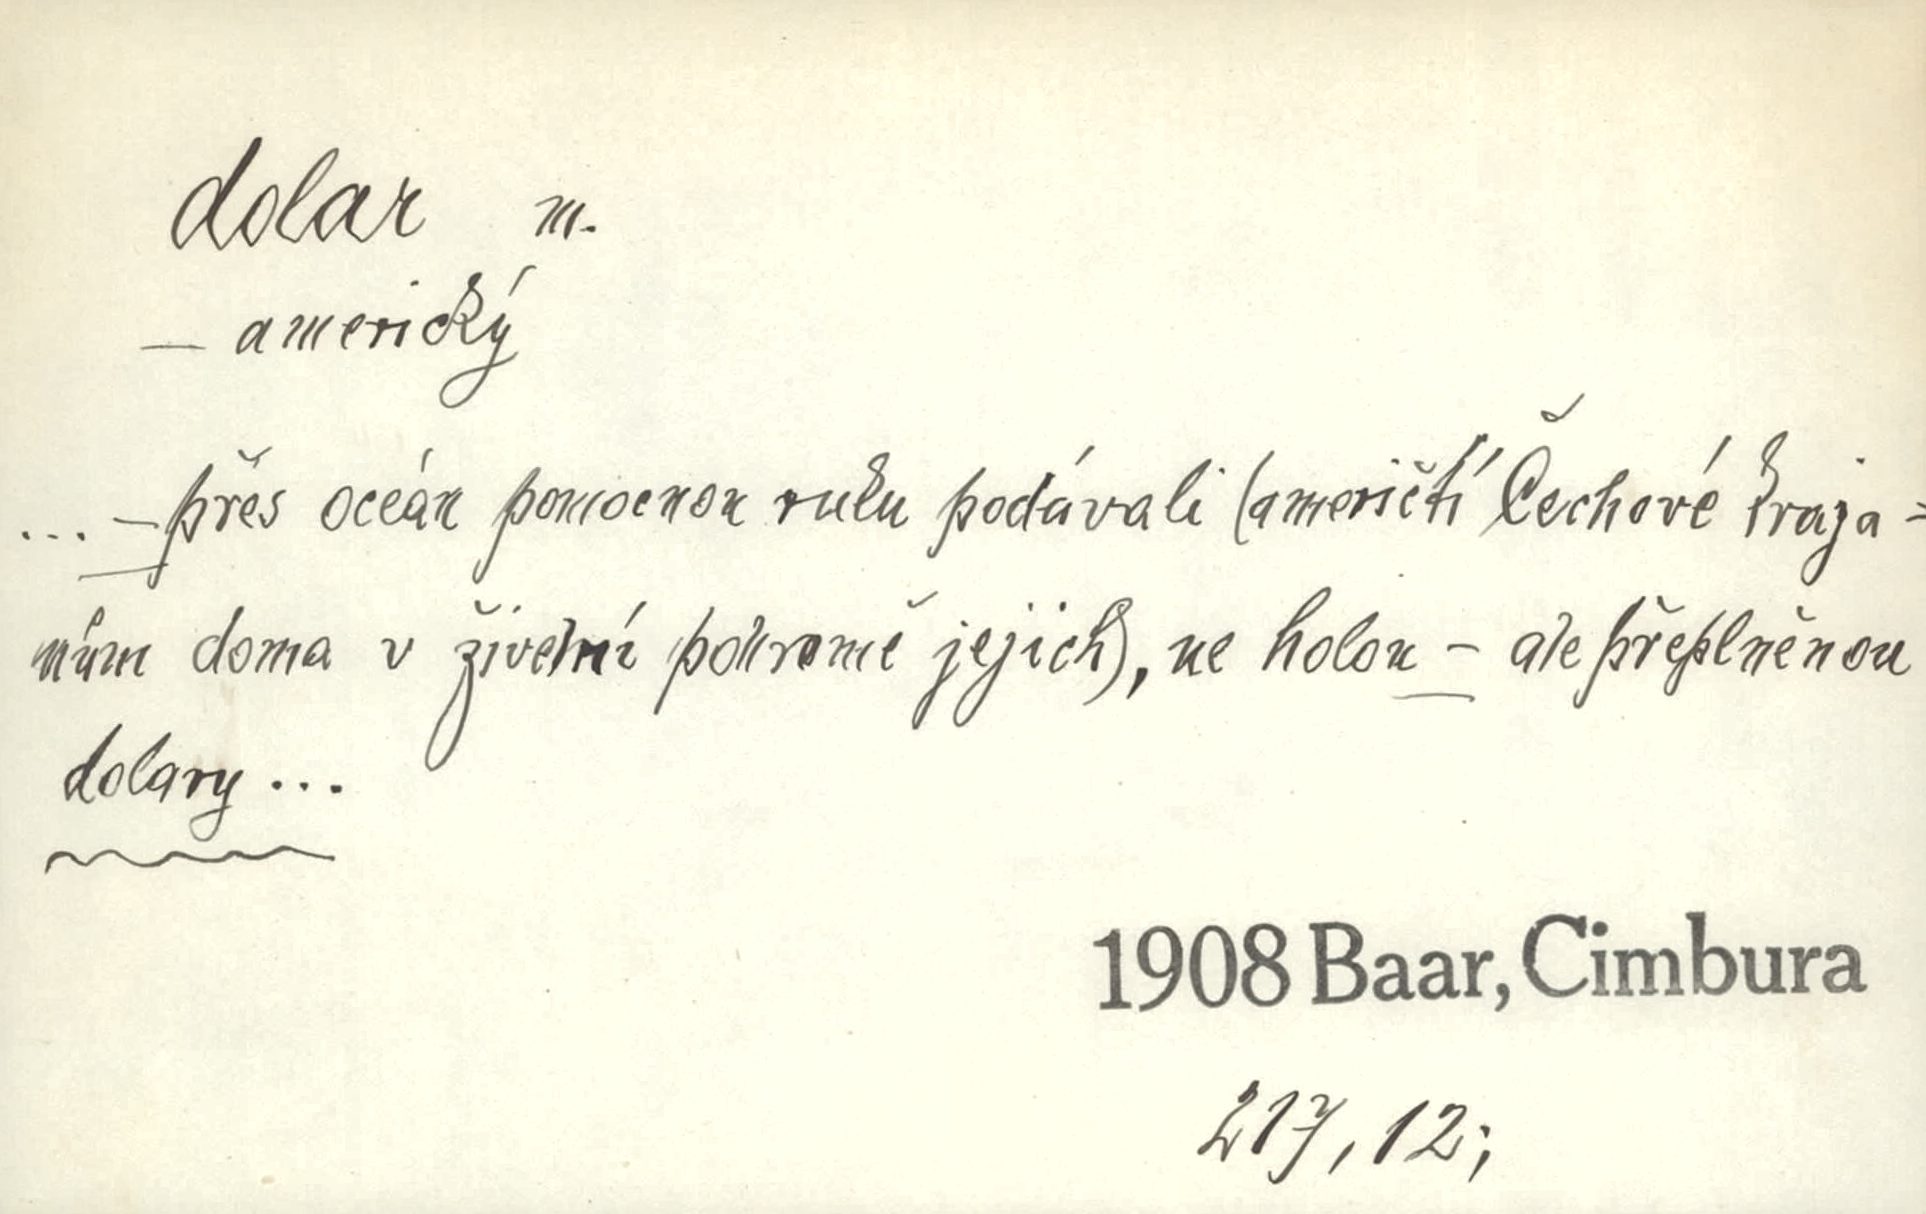 dolar m.
– americký
... – přes oceán pomocnou ruku podávali (američtí Čechové kraja=
nům doma v živelní pohromě jejich), ne holou – ale přeplněnou
dolary ...
1908 Baar, Cimbura
217, 12;